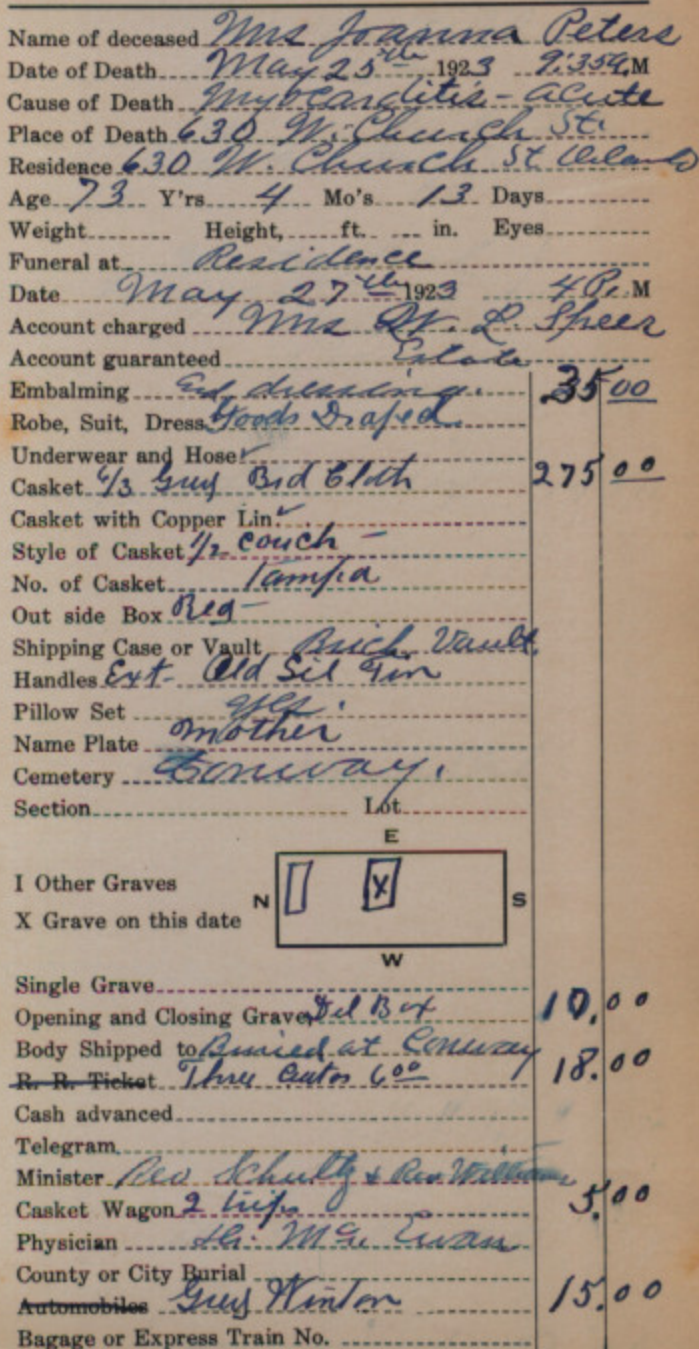 Name of deceased Mrs Joanna Peters
Date of Death May 25th 1923 9:35 A.M
Cause of Death Myocarditis - acute
Place of Death 630 W. Church St.
Residence 630 W. Church St Orlando
Age 73 Y'rs 4 Mo's 13 Days
Weight Height, ft. in. Eyes
Funeral at Residence
Date May 27th 1923 4 P. M
Account charged Mrs W. L. Speer
Account guaranteed Estate
Embalming and dressing. 35 00
Robe, Suit, Dress Goods Draped
Underwear and Hose ✓
Casket 6/3 Grey Brd Cloth 275 00
Casket with Copper Lin. ✓
Style of Casket 1/2 couch -
No. of Casket Tampa
Out side Box Reg -
Shipping Case or Vault Brick Vault.
Handles Ext - Old Sil
Pillow Set yes.
Name Plate Mother
Cemetery Conway.
Section Lot
E
I Other Graves
N S
X Grave on this date
W
Single Grave
Opening and Closing Grave Del Box 10.00
Body Shipped to Buried at Conway
R. R. Ticket Three Autos 6 00 18.00
Cash advanced
Telegram
Minister Rev Schultz & Rev Williams
Casket Wagon 2 trips 5.00
Physician Dr. Mc Ewan
County or City Burial
Automobiles Grey Winton 15.00
Bagage or Express Train No.